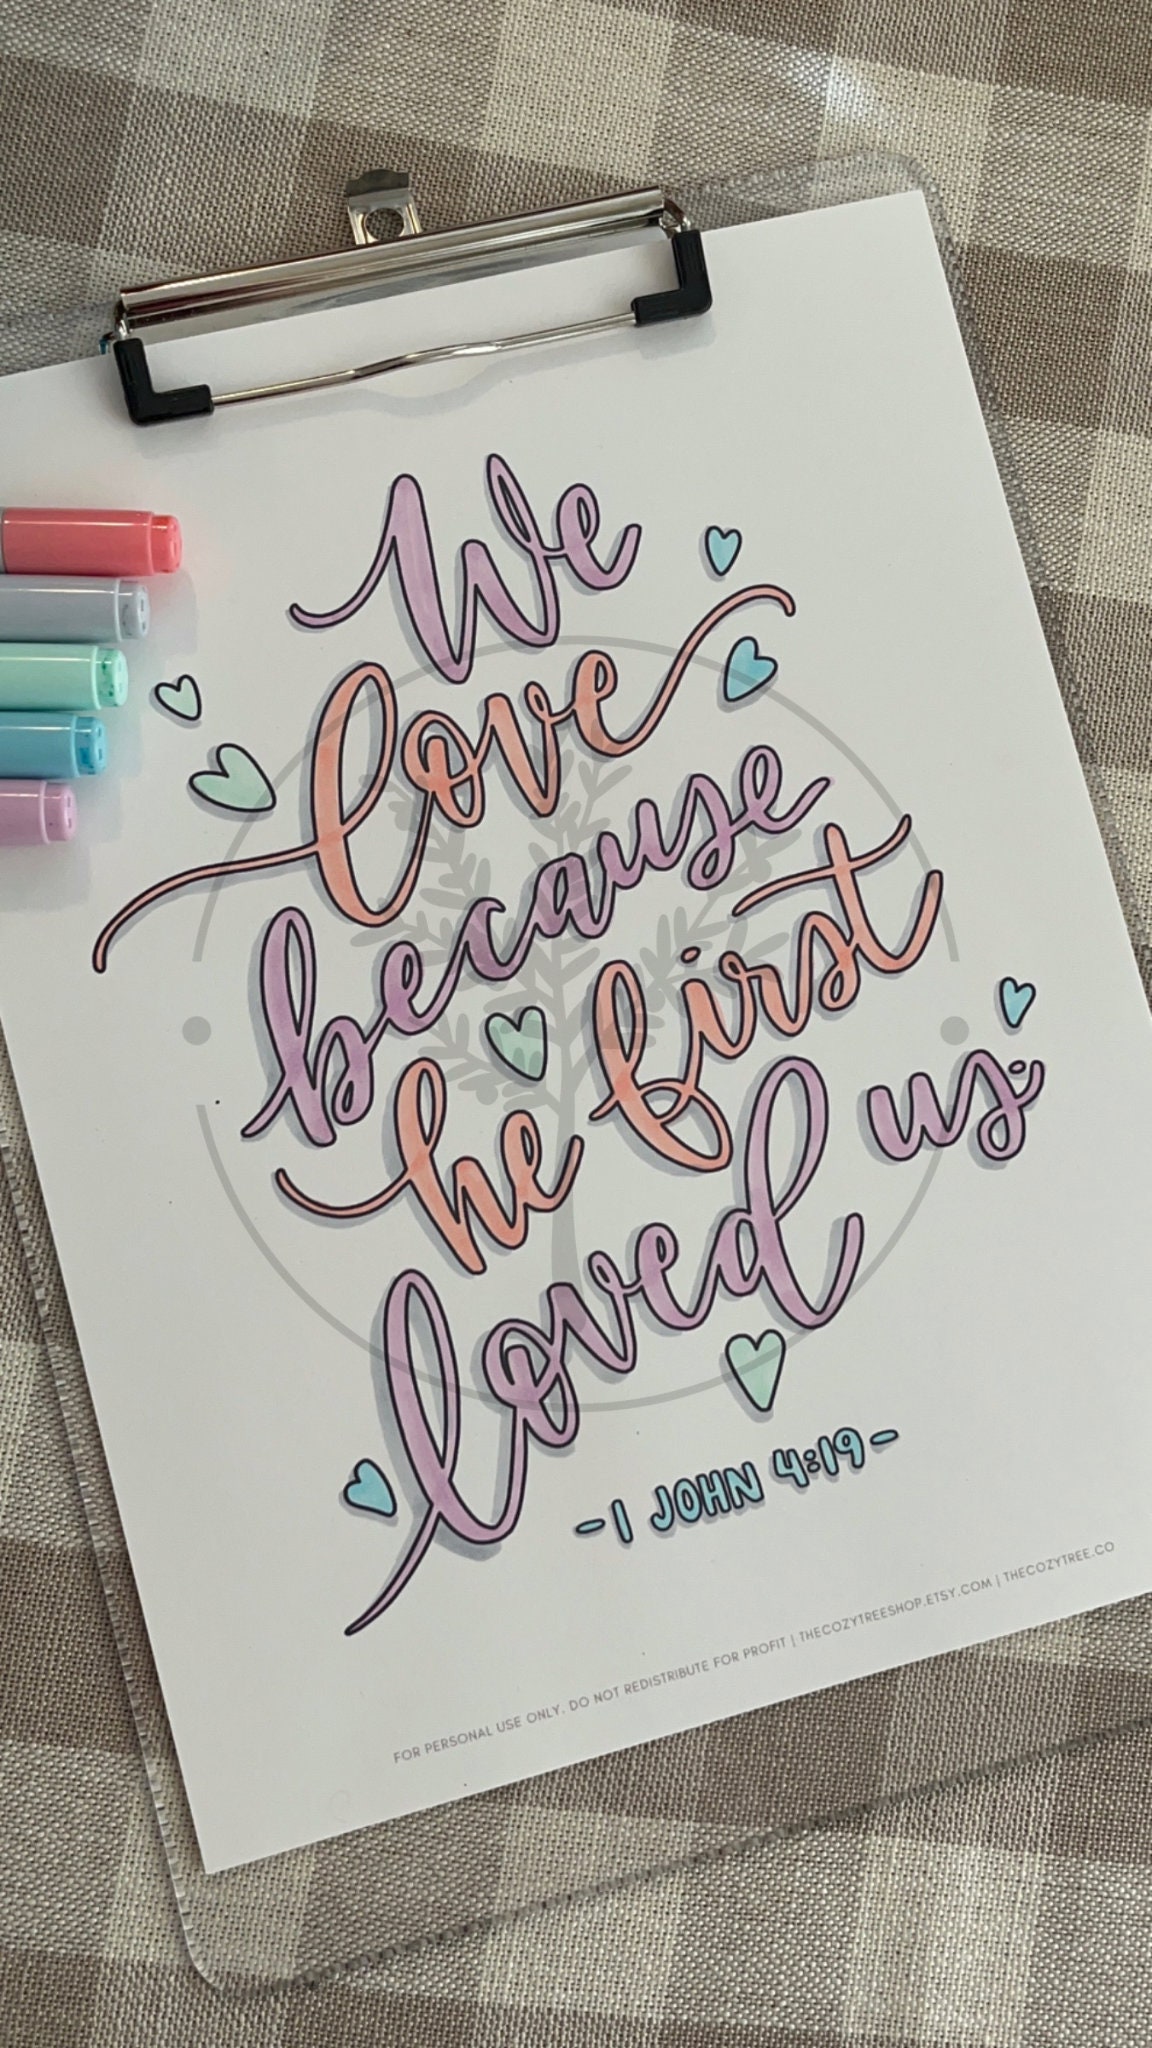 We
love
because
he first
loved us.
-1 JOHN 4:19-
FOR PERSONAL USE ONLY. DO NOT REDISTRIBUTE FOR PROFIT | THECOZYTREESHOP.ETSY.COM | THECOZYTREE.CO